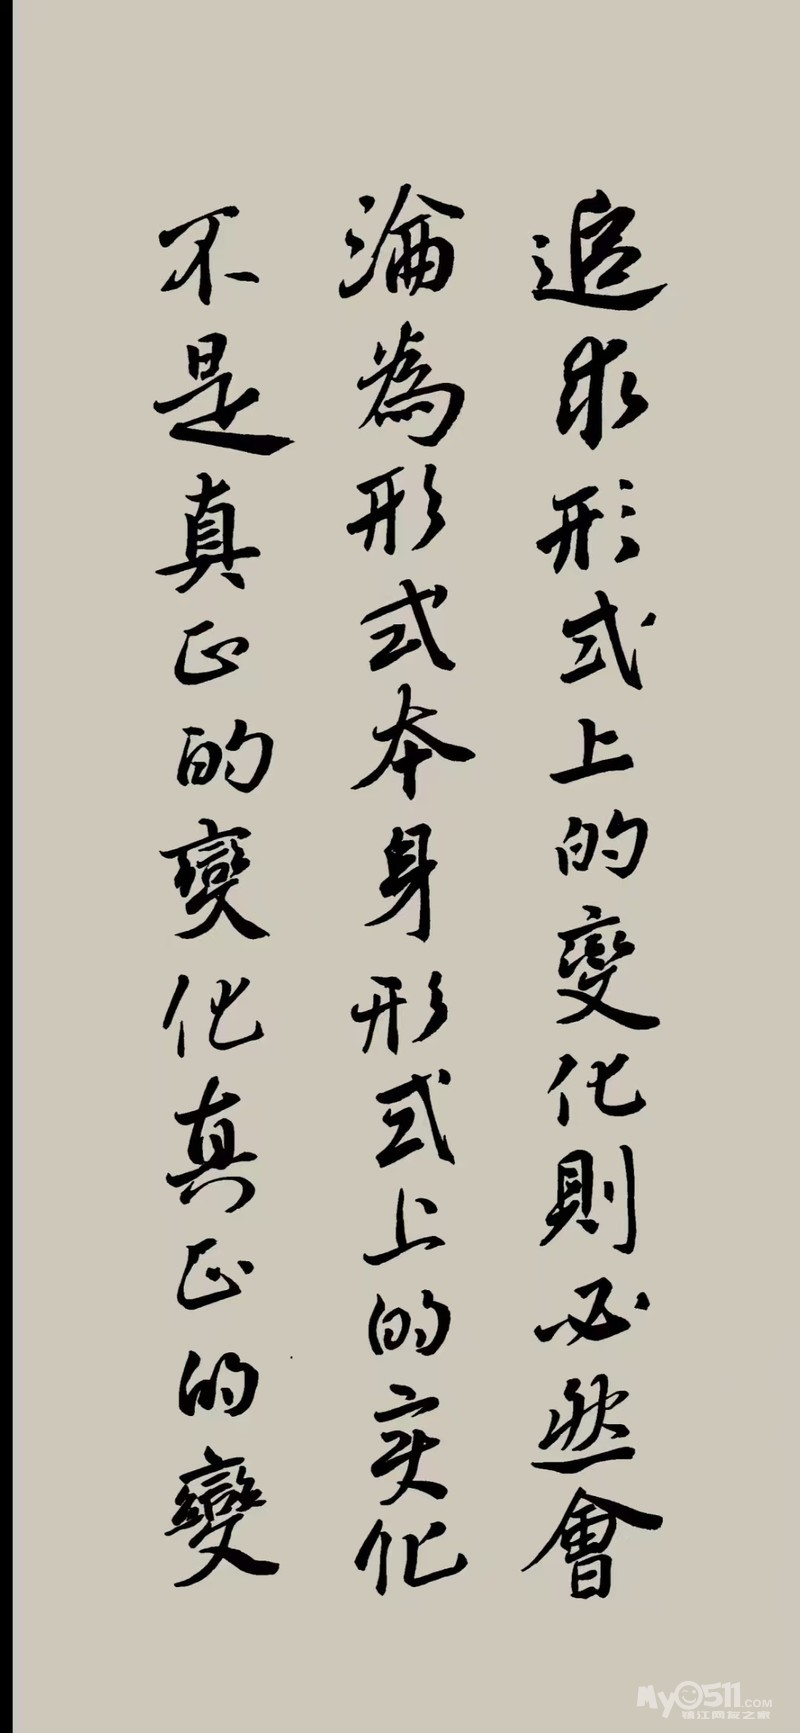 追求形式上的變化則必然會
淪為形式本身形式上的变化
不是真正的變化真正的變
My0511.COM
镇江网友之家